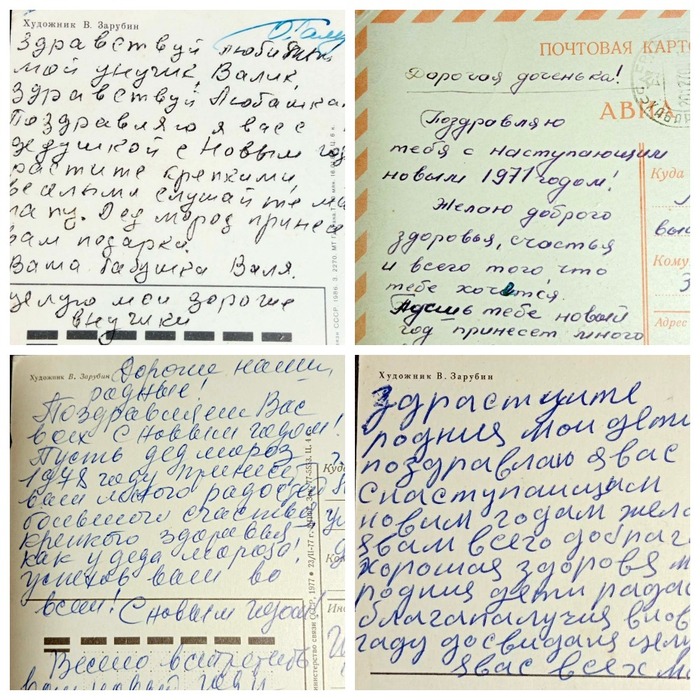 Художник В. Зарубин
Здравствуй любимый
мой унучик, Валик,
Здравствуй Любашка.
Поздравляю я васс
дедушкой с Новым год
растите крепкими
веселыми слушайте ма
папу. Дед мороз принесе
вам подарки.
Ваша бабушка Валя.
целую мои дорогие
внучики
ПОЧТОВАЯ КАРТО
АВИА
Дорогая доченька!
Поздравляю
тебя с наступающим
новым 1971 годом!
Желаю доброго
здоровья, счастья
и всего того что
тебе хочется.
Пусть тебе новый
год принесет много
Куда
Кому
Адрес
Художник В. Зарубин
Дорогие наши,
родные!
Поздравляем Вас
всех с новым годом!
Пусть дед мороз
1978 году принесет
вам много радостей
большого счастья
крепкого здоровья
как у деда мороза
успехов вам во
всем!
С новым годом!
Весело встретить
Художник В. Зарубин
здраствуите
родния мои дети
поздравлаю я вас
снаступаищым
новым годам жела
явам всего добраго
хорошая здоровя м
родния дети рада
благапалучия внов
гаду досвидания целу
явас всех м